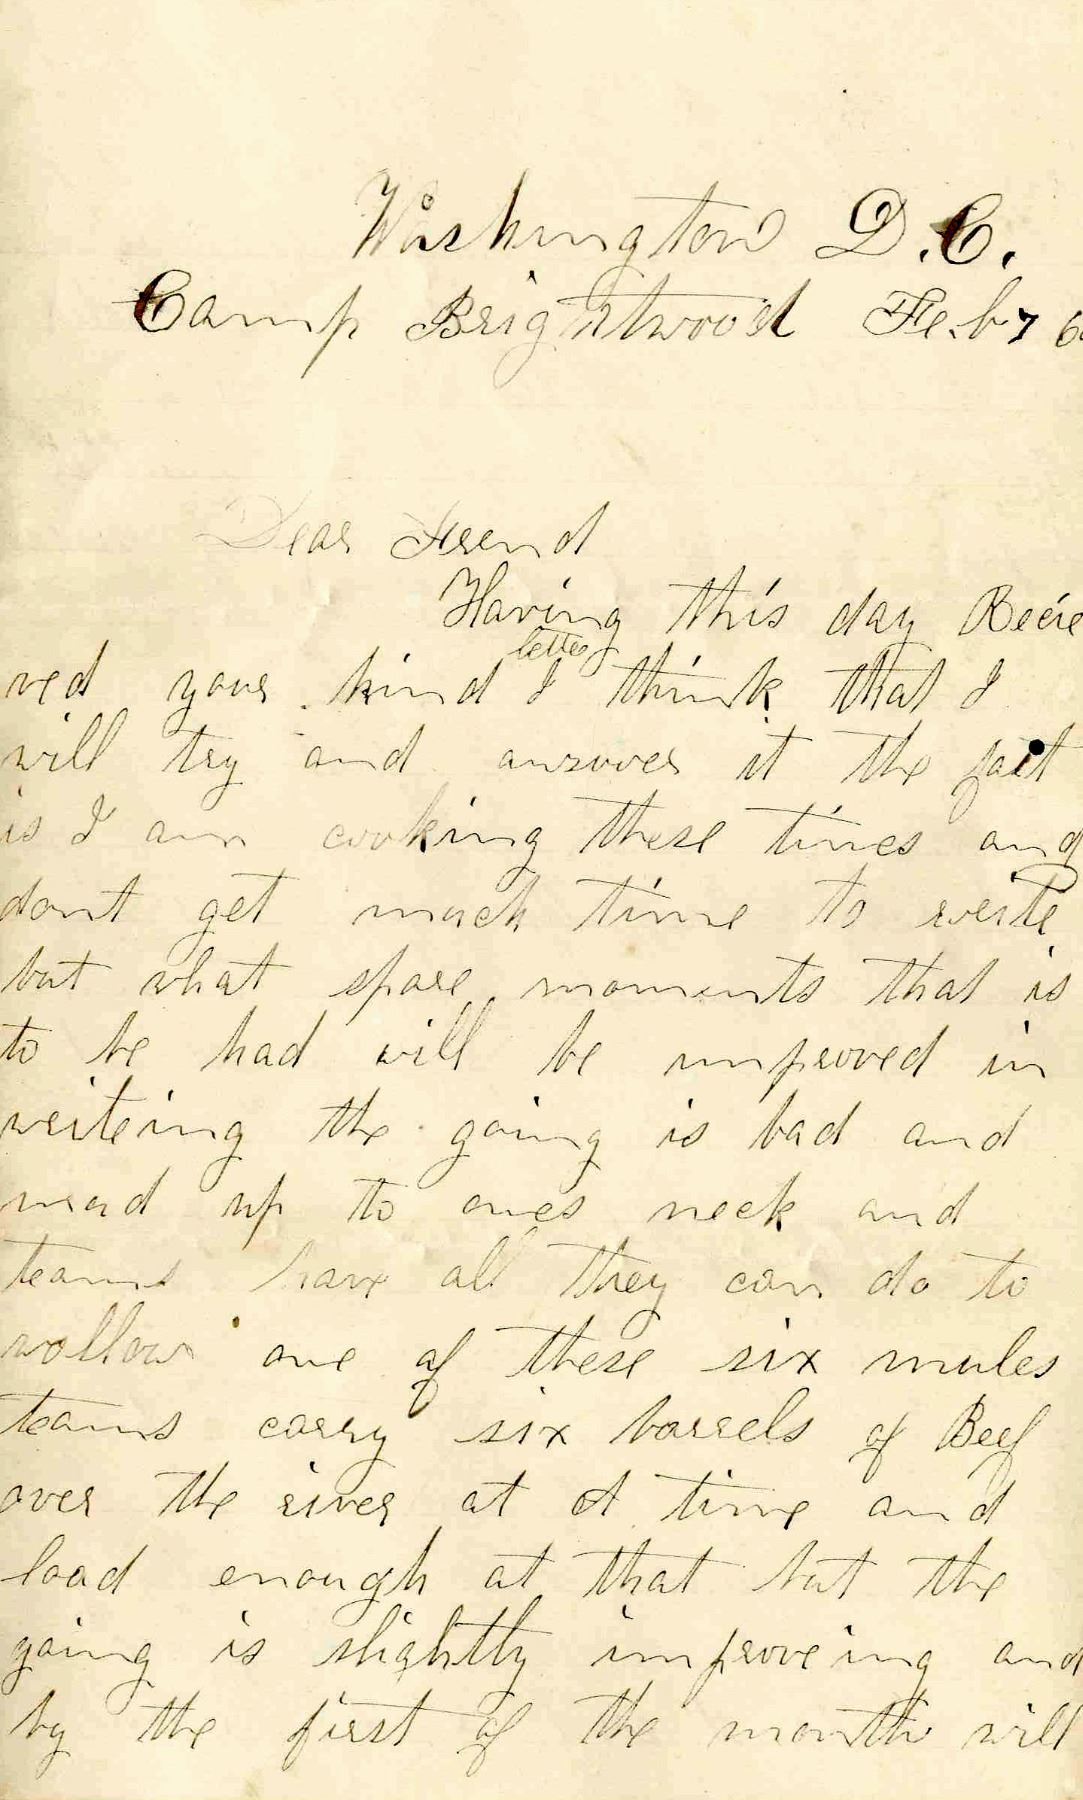 Washington D.C.
Camp Brightwood Feb 7 6
Dear Frend
Having this day Recie
letter
ved your kind I think that I
will try and answer it the fact
is I am cooking these times and
dont get much time to write
but what spare moments that is
to be had will be improved in
writeing the going is bad and
mud up to ones neck and
teams have all they can do to
wollow one of these six mules
teams carry six barrels of Beef
over the river at A time and
load enough at that but the
going is slightly improveing and
by the first of the month will